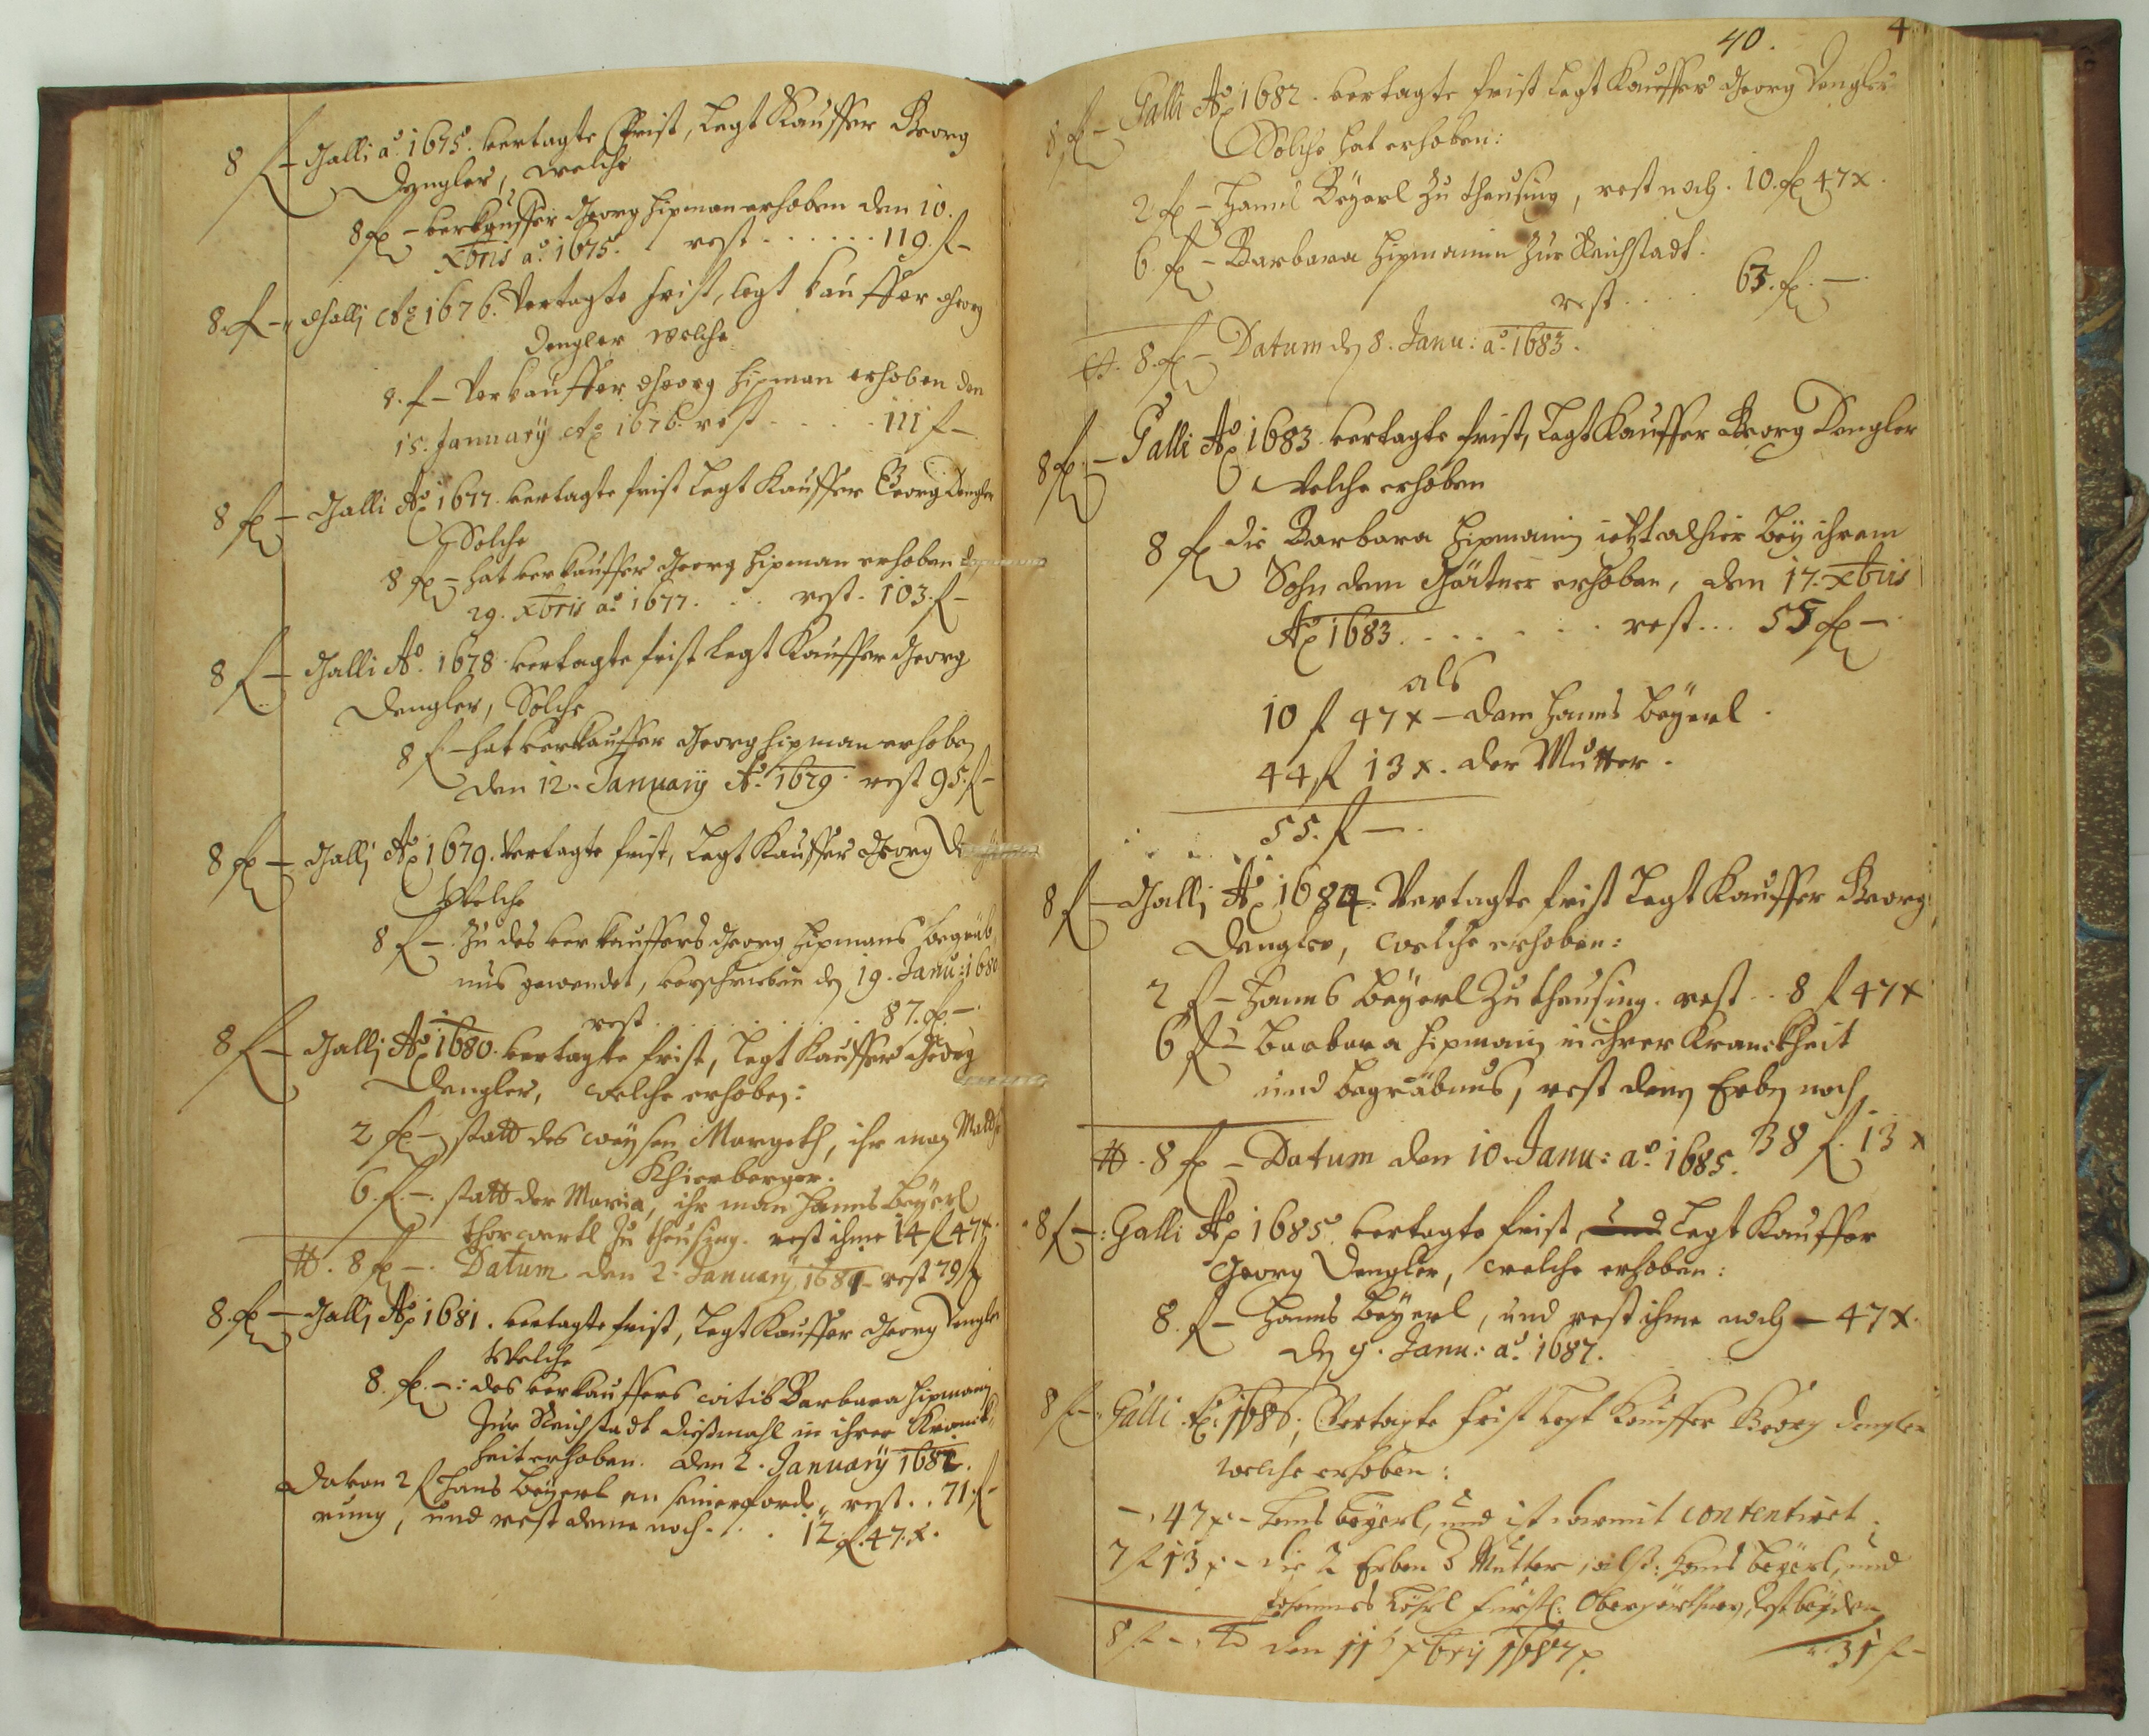 8 f – Galli a.o 1675. vertagte Frist, legt Kauffer Georg
Dengler, welche
8 fl – verkauffer Georg Hipman erhoben den 10.
Xbris a.o 1675. rest . . . . . . 119. f –
8. f – Galli Ao 1676. Vertagte frist, legt kauffer Georg
Dengler welche
8. f – Verkauffer Georg Hipman erhoben den
15. January Ao 1676. rest . . . . . 111 f –
8 fl – Galli Ao 1677. vertagte frist legt Kauffer Georg Dengler
Solche
8 fl – hat verkauffer Georg Hipman erhoben den
29. Xbris ao 1677. . . . rest. 103. f –
8 f – Galli Ao. 1678. vertagte frist legt Kauffer Georg
Dengler, Solche
8 f – hat verkauffer Georg Hipman erhoben
den 12. January Ao. 1679. rest 95. f –
8 fl – Galli Ao 1679. vertagte frist, Legt Kauffer Georg
Welche
8 f –. Zu des verkauffers Georg Hipmans begräb,
nus gewendet, verschrieben den 19. Janu: 1680
rest . . . . . . . . . 87. fl. –.
8 f – Galli Ao 1680. vertagte frist, legt Kauffer Georg
Dengler, welche erhoben:
2 fl – statt des waysen Margeth, ihr man Math
Khienberger.
6. f. –. statt der Maria, ihr man Hanns Beÿerl
thorwertl Zu theusing. rest ihme 14 f 47 x.
8 fl –. Datum den 2. January, 1681 – rest 79 fl
8. fl – Galli Ao 1681. vertagte frist, Legt Kauffer Georg Dengler
Welche
8. fl. –: des verkauffers witib Barbara Hipmanin
Zur Reichstadt dißmahl in ihrer Kranck,
heit erhoben. den 2. January 1682.
Davon 2 f Hans Beÿerl an seiner forde, rest . . 71. f –
rung, und rest deme noch. . . . 12. f. 47. x.
40. 4
8 fl – Galli Ao 1682. vertagte frist legt Kauffer Georg Dengler
Solche hat erhoben:
2 fl – Hanns Beÿerl Zu theusing, rest noch. 10. fl 47 x.
6. fl – Barbara Hipmanin Zur Reichstadt.
rest . . . . 63. f. –.
8. fl – Datum den 8. Janu: a.o 1683.
8 fl. – Galli Ao 1683. vertagte frist, legt Kauffer Georg Dengler
Welche erhoben
8 fl die Barbara Hipmanin ietzt alhier beÿ ihrem
Sohn dem Gärtner erhoben, den 17. Xbris
Ao 1683. . . . . . . . rest . . . 55 fl –
als
10 f 47 x – dem Hanns Beÿerl.
44 fl 13 x. der Mutter.
55. f –.
8 f – Galli Ao 1684. Vertagte frist legt Kauffer Georg
Dengler, welche erhoben:
2 f – Hanns Beÿerl Zu theusing. rest . . 8 f 47 x
6 f – Barbara Hipmanin in ihrer Kranckheit
und begräbnus, rest denen Erben noch
8 fl – Datum den 10. Janu: a.o 1685. 38 f. 13 x
8 f –: Galli Ao 1685. vertagte frist, legt Kauffer
Georg Dengler, welche erhoben:
8. f – Hanns Beÿerl, und rest ihme noch – 47 x.
den 9. Janu: a.o 1687.
8 f – Galli Ao 1686; Vertagte frist legt Kauffer Georg Dengler
welche erhoben:
–. 47 x. – Hans Beÿerl, und ist darmit contentiret.
7 f 13 x. – die 2 Erben d Mutter, alß: Hans Beÿerl, und
Johannes fürstl: Obergärthner, Rest beÿden
8 f – den 11 xbris 1687. 31 f –